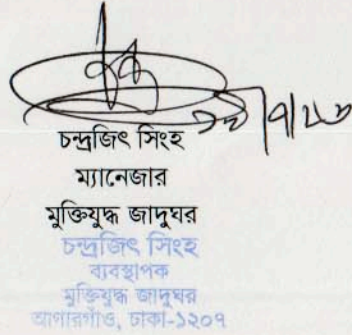 চন্দ্রজিৎ সিংহ
ম্যানেজার
মুক্তিযুদ্ধ জাদুঘর
চন্দ্রজিৎ সিংহ
ব্যবস্থাপক
মুক্তিযুদ্ধ জাদুঘর
আগারগাঁও, ঢাকা-১২০৭